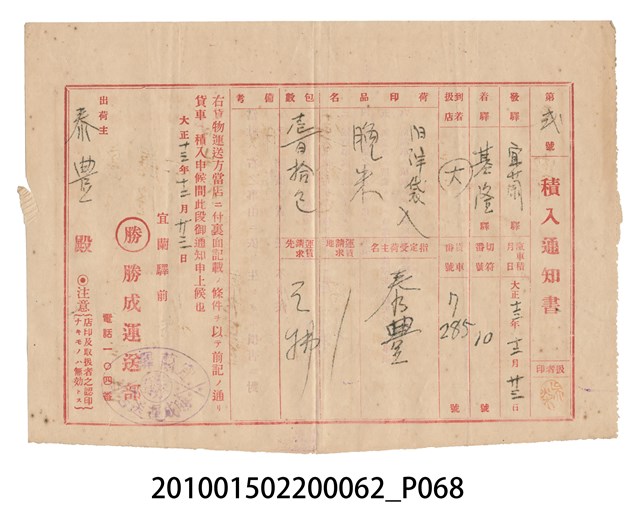 第 貳 號
積入通知書
扱者印
發驛 宜蘭 驛
貨車積月日 大正十三年十二月廿三日
着驛 基隆 驛
切符番號 10 號
到着扱店 大
貨車番號 ワ285 號
荷印 旧洋袋入
指定受荷主名 泰豊
品名 糙米
運賃請求地
包數 壹百拾包
運賃請求先 元拂
備考
右貨物運送方當店ニ付裏面記載ノ條件ヲ以テ前記ノ通リ
貨車ニ積入申候間此段御通知申上候也
大正十三年十二月廿三日
宜蘭驛前
勝 勝成運送部
電話一〇四番
出荷主 泰豊 殿
◉注意 店印及取扱者之認印ナキモノハ無効トス
201001502200062_P068